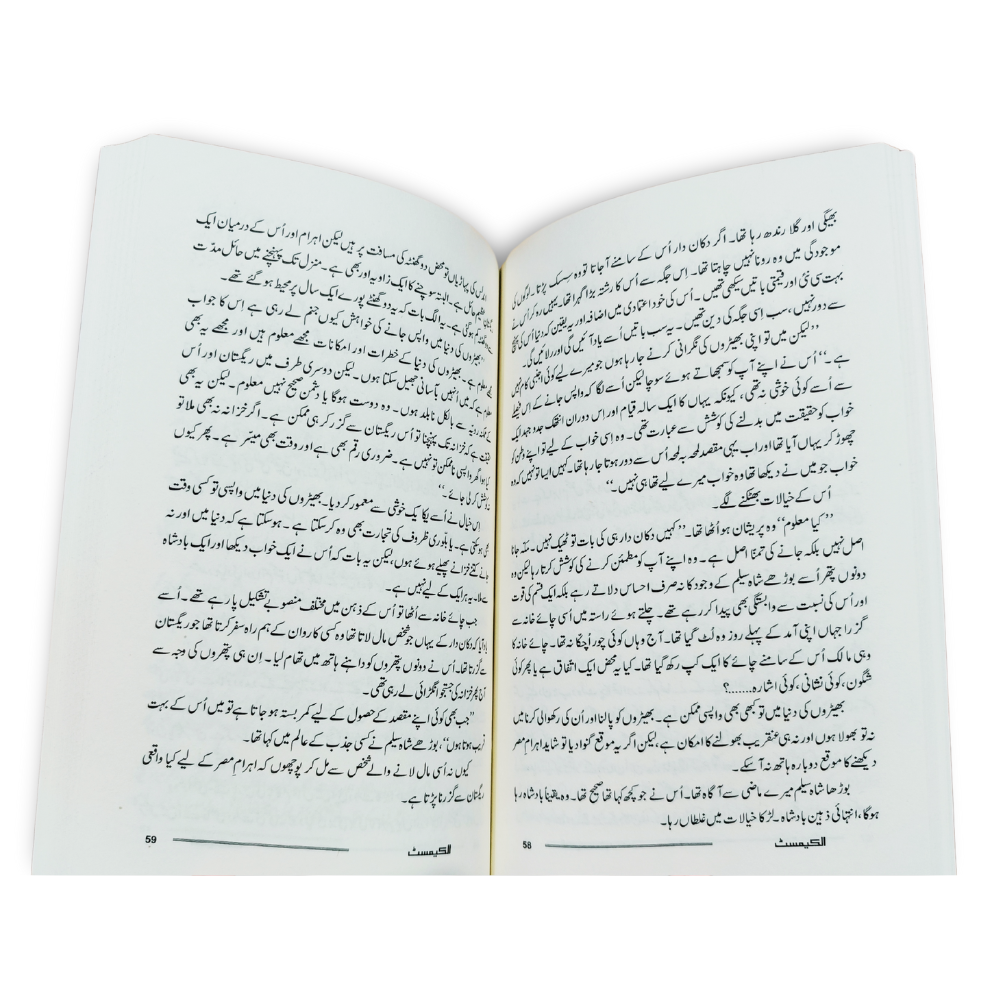 بھیگی اور گلا رندھ رہا تھا۔ اگر دکان دار اُس کے سامنے آ جاتا تو وہ سِسک پڑتا۔ لوگوں کی
موجودگی میں وہ رونا نہیں چاہتا تھا۔ اِس جگہ سے اُس کا رشتہ بڑا گہرا تھا۔ یہیں رہ کر اُس نے
بہت سی نئی اور قیمتی باتیں سیکھی تھیں۔ اُس کی خود اعتمادی میں اضافہ اور یہ یقین کہ دنیا اُس کی پہنچ
سے دور نہیں، سب اِسی جگہ کی دین تھیں۔ یہ سب باتیں اُسے یاد آئیں گی اور رلائیں گی۔
’’لیکن میں تو اپنی بھیڑوں کی نگرانی کرنے جا رہا ہوں جو میرے لیے کوئی اجنبی کام نہیں
ہے۔‘‘ اُس نے اپنے آپ کو سمجھاتے ہوئے سوچا لیکن اُسے لگا کہ واپس جانے کے اِس فیصلے
سے اُسے کوئی خوشی نہ تھی، کیونکہ یہاں کا ایک سالہ قیام اور اِس دوران انتھک جدوجہد ایک
خواب کو حقیقت میں بدلنے کی کوشش سے عبارت تھی۔ وہ اِسی خواب کے لیے تو اپنے وطن کو
چھوڑ کر یہاں آیا تھا اور اب یہی مقصد لمحہ بہ لمحہ اُس سے دور ہوتا جا رہا تھا۔ کہیں ایسا تو نہیں کہ وہ
خواب جو میں نے دیکھا تھا وہ خواب میرے لیے تھا ہی نہیں۔‘‘
اُس کے خیالات بھٹکنے لگے۔
’’کیا معلوم‘‘ وہ پریشان ہو اُٹھا تھا۔ ’’کہیں دکان دار ہی کی بات تو ٹھیک نہیں۔ مکّہ جانا
اصل نہیں بلکہ جانے کی تمنّا اصل ہے۔ وہ اپنے آپ کو مطمئن کرنے کی کوشش کرتا رہا لیکن وہ
دونوں پتھر اُسے بوڑھے شاہ سیلم کے وجود کا نہ صرف احساس دلاتے رہے بلکہ ایک قسم کی قوت
اور اُس کی نسبت سے وابستگی بھی پیدا کر رہے تھے۔ چلتے ہوئے راستہ میں اُسی چائے خانہ سے
گزرا جہاں اپنی آمد کے پہلے روز وہ لُٹ گیا تھا۔ آج وہاں کوئی چور اُچکا نہ تھا۔ چائے خانہ کا
وہی مالک اُس کے سامنے چائے کا ایک کپ رکھ گیا تھا۔ کیا یہ محض ایک اتفاق ہے یا پھر کوئی
شگون، کوئی نشانی، کوئی اشارہ.......؟
بھیڑوں کی دنیا میں تو کبھی بھی واپسی ممکن ہے۔ بھیڑوں کو پالنا اور اُن کی رکھوالی کرنا میں
نہ تو بھولا ہوں اور نہ ہی عنقریب بھولنے کا امکان ہے، لیکن اگر یہ موقع گنوا دیا تو شاید اہرامِ مصر
دیکھنے کا موقع دوبارہ ہاتھ نہ آ سکے۔
بوڑھا شاہ سیلم میرے ماضی سے آگاہ تھا۔ اُس نے جو کچھ کہا تھا صحیح تھا۔ وہ یقیناً بادشاہ رہا
ہو گا، انتہائی ذہین بادشاہ۔ لڑکا خیالات میں غلطاں رہا۔
الکیمسٹ 58
اندلس کی پہاڑیاں تو محض دو گھنٹہ کی مسافت پر ہیں لیکن اہرام اور اُس کے درمیان ایک
عظیم حائل ہے۔ البتہ سوچنے کا ایک زاویہ اور بھی ہے۔ منزل تک پہنچنے میں حائل مدّت
کم ہو گئی ہے۔ یہ الگ بات کہ یہ دو گھنٹے پورے ایک سال پر محیط ہو گئے تھے۔
بھیڑوں کی دنیا میں واپس جانے کی خواہش کیوں جنم لے رہی ہے اِس کا جواب
معلوم ہے۔ بھیڑوں کی دنیا کے خطرات اور امکانات مجھے معلوم ہیں اور مجھے یہ بھی
معلوم ہے کہ میں اُنہیں بآسانی جھیل سکتا ہوں۔ لیکن دوسری طرف میں ریگستان اور اُس
رویہ سے بالکل نابلد ہوں۔ وہ دوست ہو گا یا دشمن صحیح نہیں معلوم۔ لیکن یہ بھی
ہے کہ خزانہ تک پہنچنا تو اُس ریگستان سے گزر کر ہی ممکن ہے۔ اگر خزانہ نہ بھی ملا تو
اگر واپسی ناممکن تو نہیں ہے۔ ضروری رقم بھی ہے اور وقت بھی میسّر ہے۔ پھر کیوں
کوشش کر لی جائے۔‘‘
اِس خیال نے اُسے یکا یک خوشی سے معمور کر دیا۔ بھیڑوں کی دنیا میں واپسی تو کسی وقت
ہو سکتی ہے۔ یا بلّوری ظروف کی تجارت بھی وہ کر سکتا ہے۔ ہو سکتا ہے کہ دنیا میں اور نہ
جانے کتنے خزانے چھپے ہوئے ہوں، لیکن یہ بات کہ اُس نے ایک خواب دیکھا اور ایک بادشاہ
سے ملا۔ یہ ہر ایک کے لیے نہیں ہے۔
جب چائے خانہ سے اٹھا تو اُس کے ذہن میں مختلف منصوبے تشکیل پا رہے تھے۔ اُسے
یاد آیا کہ دکان دار کے یہاں جو شخص مال لاتا تھا وہ کسی کاروان کے ہم راہ سفر کرتا تھا جو ریگستان
سے گزرتا تھا۔ اُس نے دونوں پتھروں کو داہنے ہاتھ میں تھام لیا۔ اِن ہی پتھروں کی وجہ سے
آج پھر خزانہ کی جستجو انگڑائی لے رہی تھی۔
’’جب بھی کوئی اپنے مقصد کے حصول کے لیے کمر بستہ ہو جاتا ہے تو میں اُس کے بہت
قریب ہوتا ہوں‘‘، بوڑھے شاہ سیلم نے کسی جذب کے عالم میں کہا تھا۔
کیوں نہ اُسی مال لانے والے شخص سے مل کر پوچھوں کہ اہرامِ مصر کے لیے کیا واقعی
ریگستان سے گزرنا پڑتا ہے۔
الکیمسٹ 59